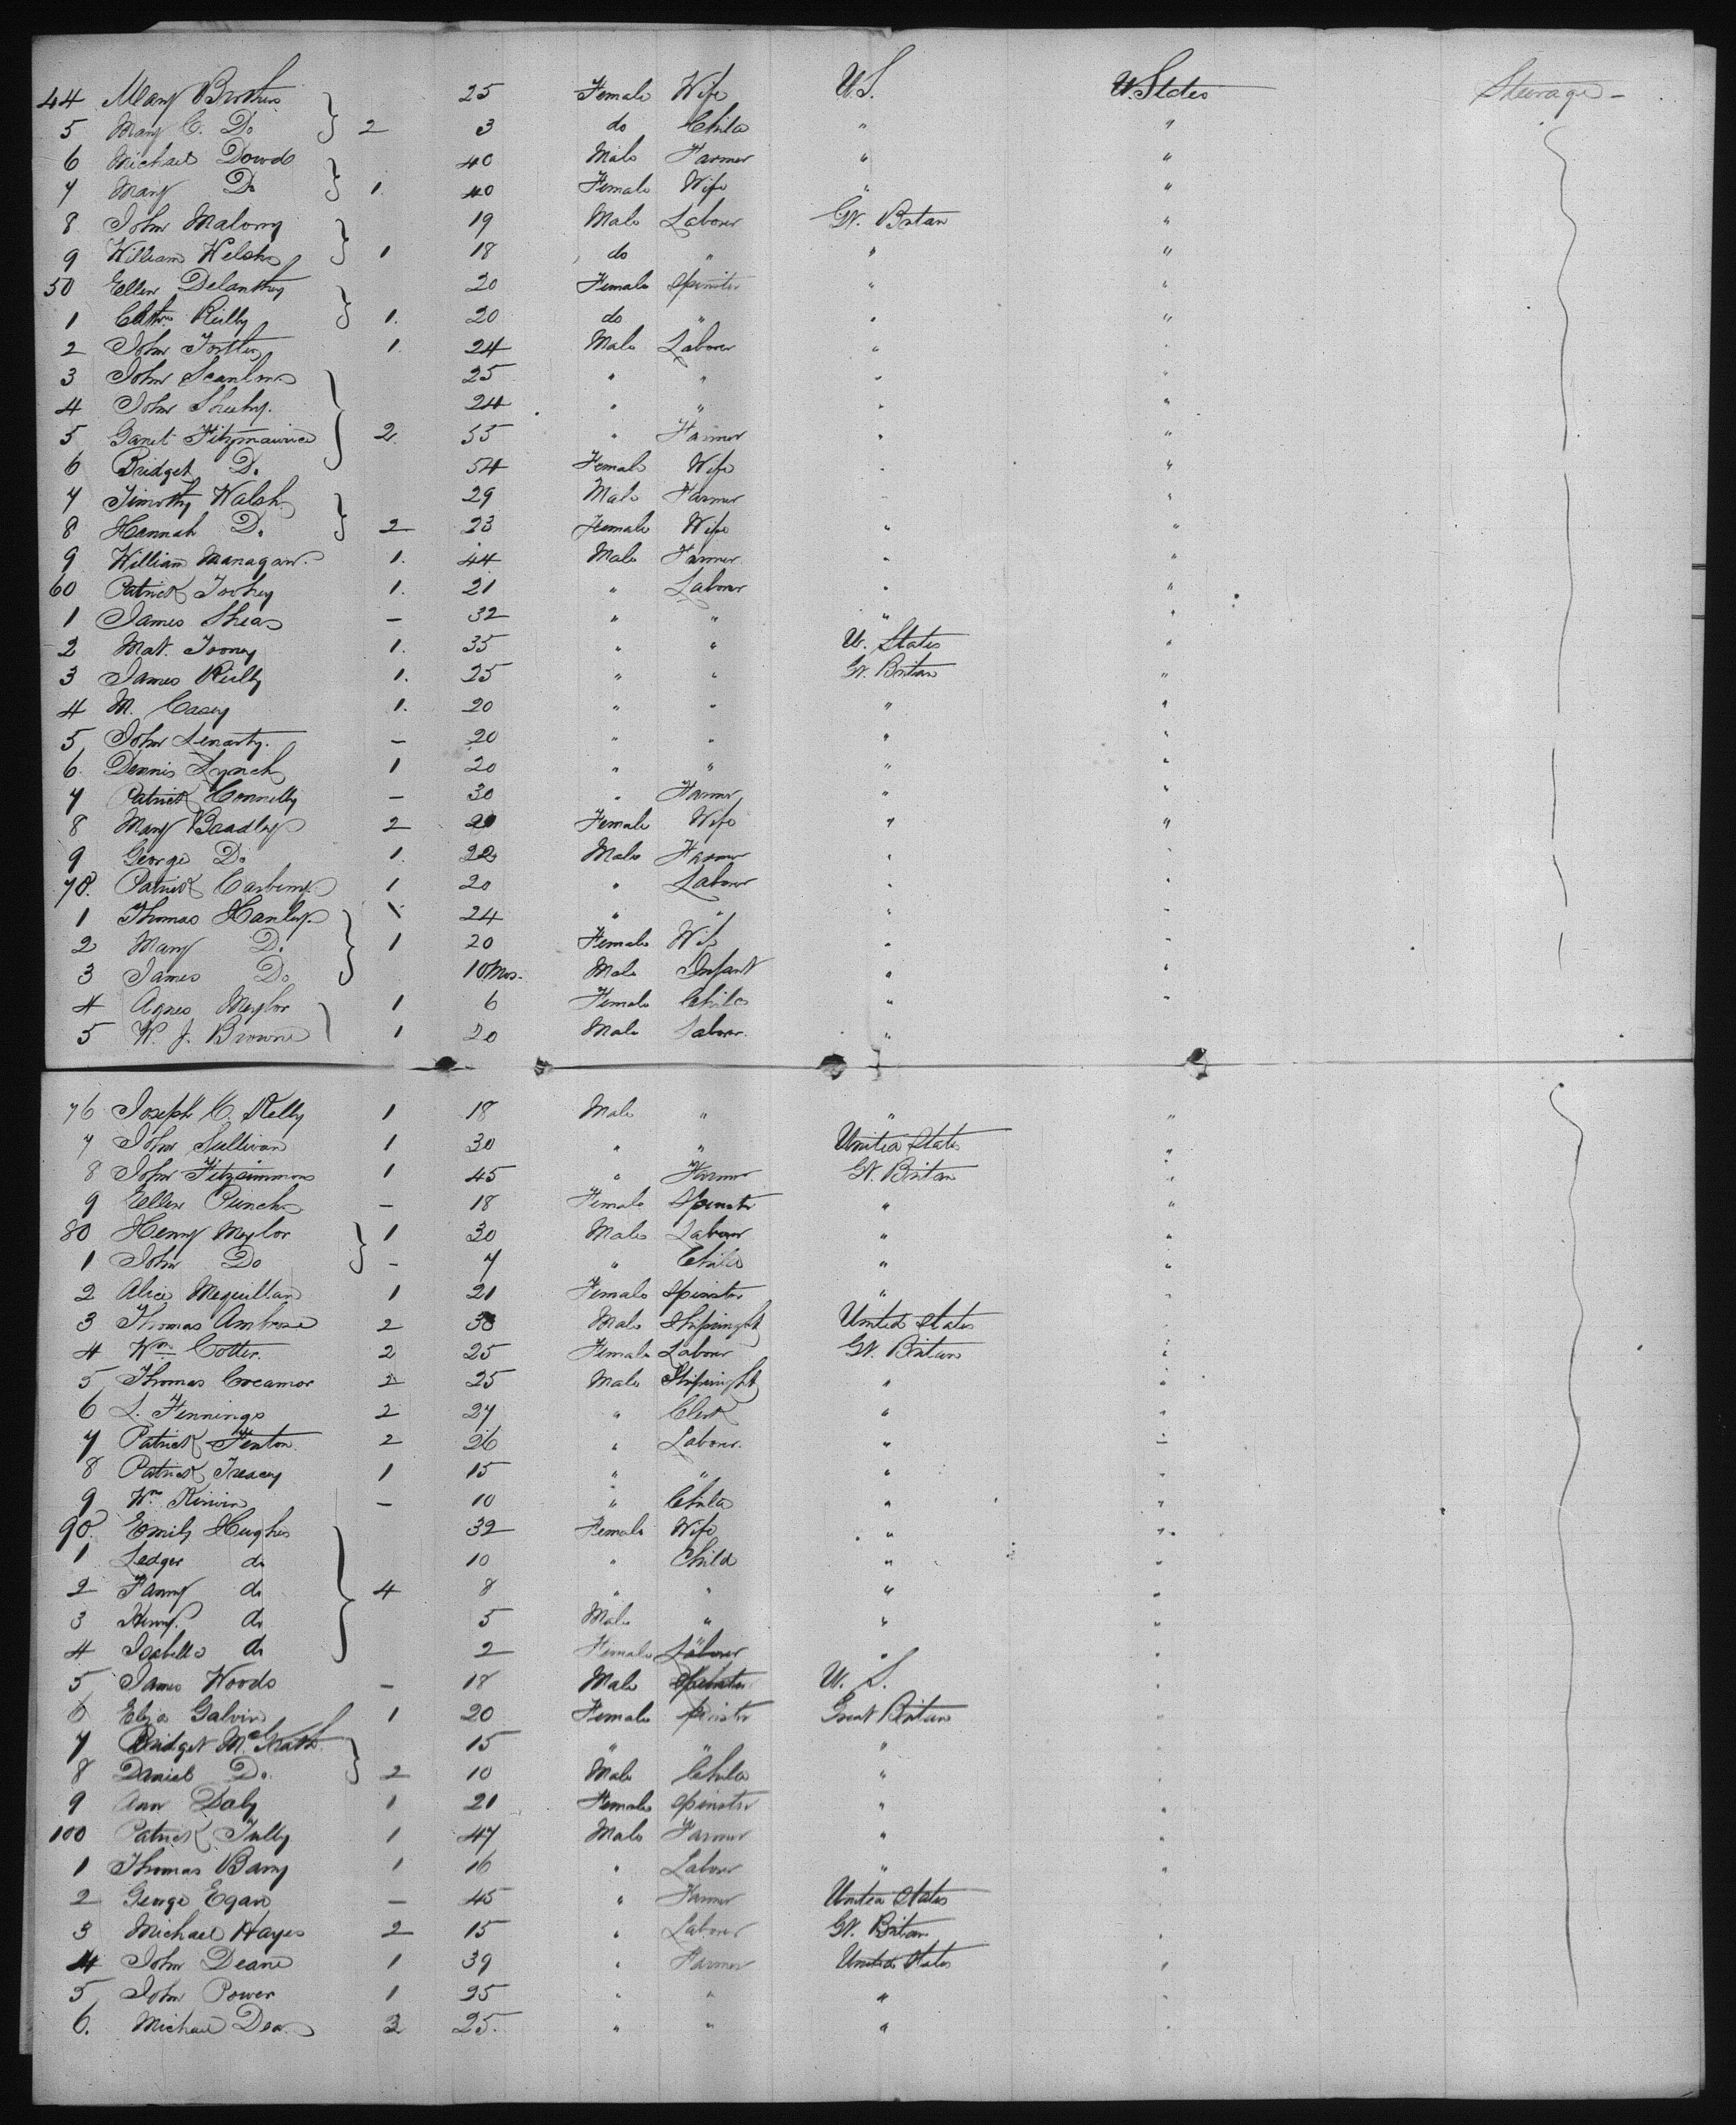 44 Mary Brothers 25 Female Wife U.S. U. States Steerage -
5 Mary C. Do } 2 3 do Child " "
6 Michael Dowd 40 Male Farmer " "
7 Mary Do } 1. 40 Female Wife " "
8 John Malony 19 Male Laborer Gt. Britan "
9 William Welsh } 1 18 do " " "
50 Ellen Delanthey 20 Female Spinster " "
1 Cathe Reilly } 1. 20 do " " "
2 John 1. 24 Male Laborer " "
3 John Scanlon 25 " " " "
4 John Sheehy. 24 " " " "
5 Garret Fitzmaurice } 2. 55 " Farmer " "
6 Bridget Do 54 Female Wife " "
7 Timothy Walsh 29 Male Farmer " "
8 Hannah Do } 2 23 Female Wife " "
9 William Managan 1. 44 Male Farmer " "
60 Patrick Toohey 1. 21 " Laborer " "
1 James Shea - 32 " " " "
2 Mat. Tooney 1. 35 " " U. States "
3 James Reilly 1. 25 " " Gt. Britan "
4 M. Casey 1. 20 " " " "
5 John Lenarty. - 20 " " " "
6. Dennis Lynch 1 20 " " " "
7 Patrick Connelly - 30 " Farmer " "
8 Mary Beadley 2 20 Female Wife " "
9 George Do 1. 22 Male Farmer " "
70. Patrick 1 20 " Laborer " "
1 Thomas Hanley 1 24 " " " "
2 Mary Do } 1 20 Female Wife " "
3 James Do 10 Mos. Male Infant " "
4 Agnes Meylor 1 6 Female Child " "
5 W. J. Browne 1 20 Male Laborer. "
76 Joseph C. Kelly 1 18 Male " " "
7 John Sullivan 1 30 " " United States "
8 John Fitzsimmons 1 45 " Farmer Gt. Britan "
9 Ellen Punch - 18 Female Spinster " "
80 Henry Meylor } 1 30 Male Laborer " "
1 John Do - 7 " Child " "
2 Alice Mequillan 1 21 Female Spinster " "
3 Thomas Ambrose 2 38 Male Shipwright United States "
4 Wm Cotter. 2 25 Female Laborer Gt. Britan "
5 Thomas Creamor 2 25 Male Shipwright " "
6 L. Fennings 2 27 " Clerk " "
7 Patrick Fenton. 2 26 " Laborer. " "
8 Patrick Treacy 1 15 " " " "
9 Wm Kirwin - 10 " Child " "
90. Emily Hughes 32 Female Wife " "
1 Ledger do 10 " Child " "
2 Fanny do } 4 8 " " " "
3 Henry. do 5 Male " " "
4 Isabella do 2 Female Laborer " "
5 James Woods - 18 Male U. S. "
6 Eliza Galvin 1 20 Female Spinster Great Britain "
7 Bridget McGrath 15 " " " "
8 Daniel Do. } 2 10 Male Child " "
9 Ann Daly 1 21 Female Spinster " "
100 Patrick Tully 1 47 Male Farmer " "
1 Thomas Barry 1 16 " Laborer " "
2 George Egan - 45 " Farmer United States "
3 Michael Hayes 2 15 " Laborer Gt. Britan "
4 John Deane 1 39 " Farmer United States "
5 John Power 1 25 " " " "
6. Michael Dea 3 25. " " " "